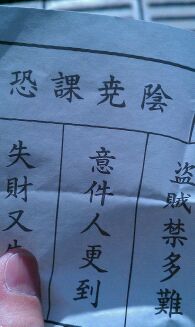 陰尭課恐
盗賊禁多難
意件人更到
失財又